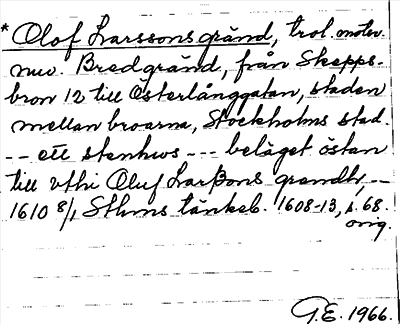 * Olof Larssons gränd, trol. motsv.
nuv. Bredgränd, från Skepps-
bron 12 till Österlånggatan, staden
mellan broarna, Stockholms stad.
-- ett stenhws --- beläget östan
till vthi Oluf Larßons grendh, --
1610 8/1 Sthms tänkeb. 1608-13, s. 68.
orig.
G.E. 1966.